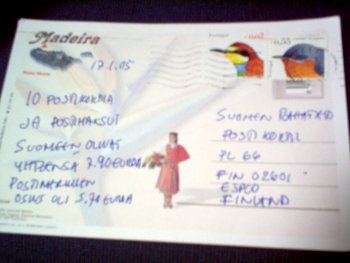 Madeira
Portugal
€0,02
0,55
17.1.05
10 POSTIKORTTIA
JA POSTIMAKSUT
SUOMEEN OLIVAT
YHTEENSÄ 7.90 EUROA
POSTIMERKKIEN
OSUUS OLI 5,70 EUROA
SUOMEN
POSTI
PL 66
FIN 02601
ESPOO
FINLAND